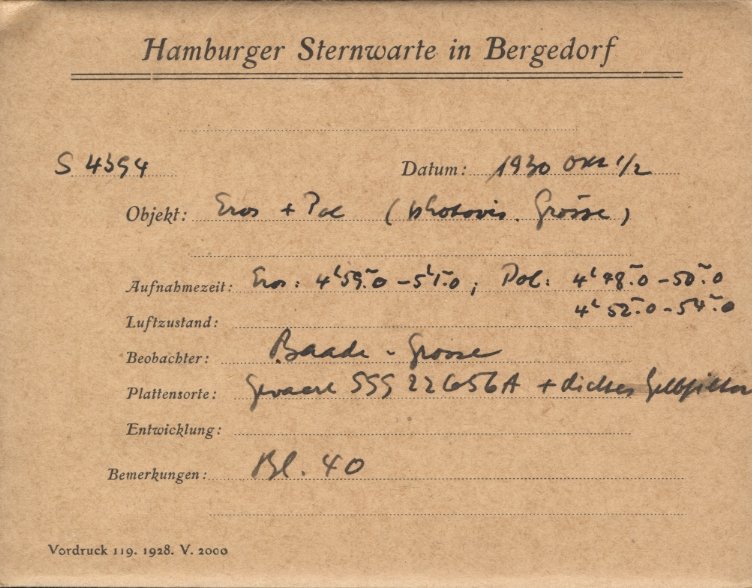 Hamburger Sternwarte in Bergedorf
S 4394 Datum: 1930 Okt 1/2
Objekt: Eros + Pol (photovis. Grösse)
Aufnahmezeit: Eros: 4ʰ59ᵐ.0 – 5ʰ1ᵐ.0; Pol: 4ʰ48ᵐ.0 – 50ᵐ.0
4ʰ52ᵐ.0 – 54ᵐ.0
Luftzustand:
Beobachter: Baade -
Plattensorte: Gevaert SSS 22656A + dichtes Gelbfilter
Entwicklung:
Bemerkungen: Bl. 40
Vordruck 119. 1928. V. 2000